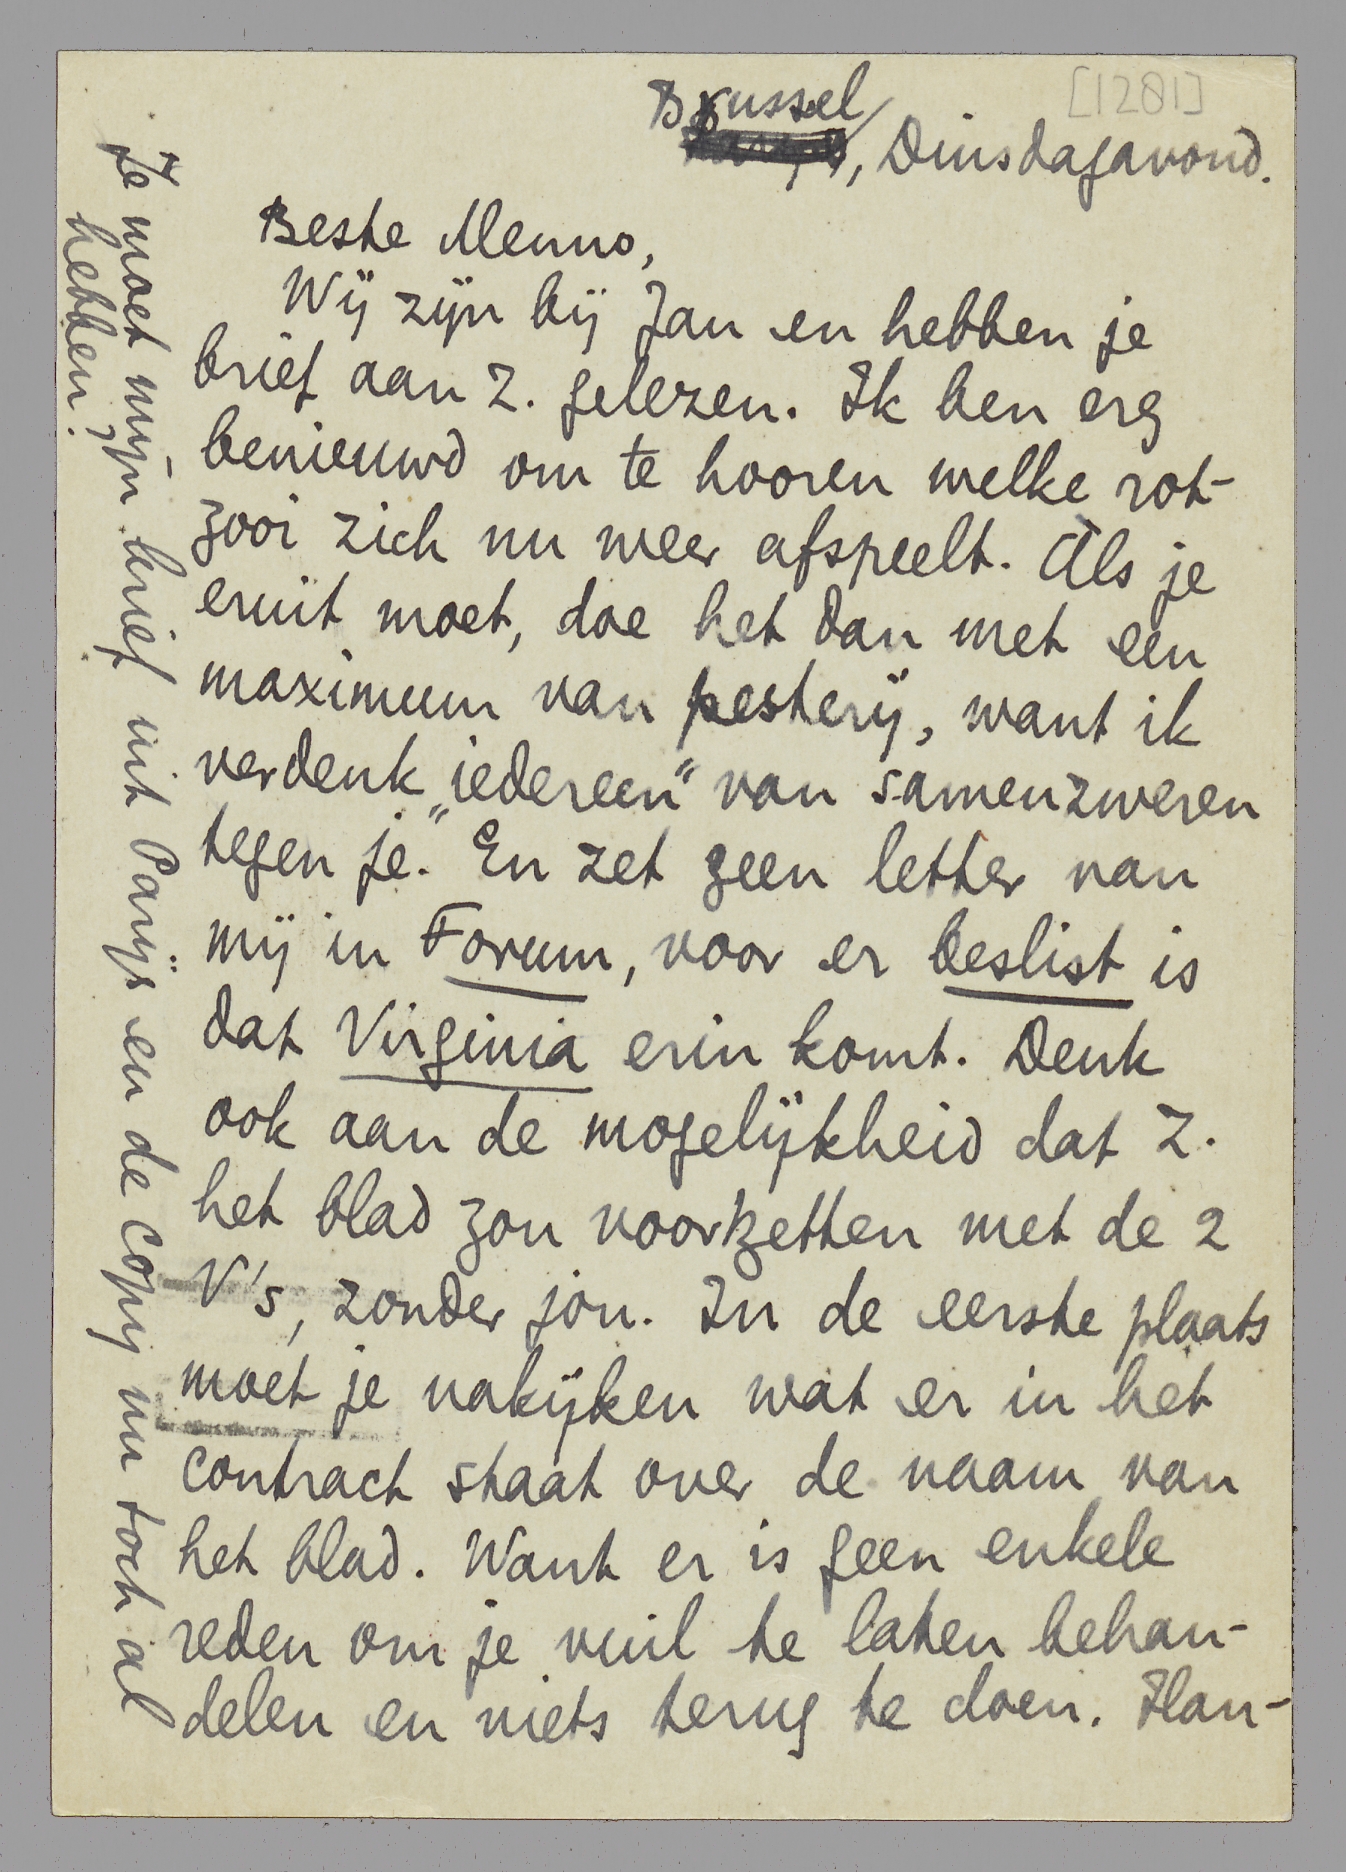 [1281]
Brussel
, Dinsdagavond.
Beste Menno,
Wij zijn bij Jan en hebben je
brief aan Z. gelezen. Ik ben erg
benieuwd om te hooren welke rot-
zooi zich nu weer afspeelt. Als je
eruit moet, doe het dan met een
maximum van pesterij, want ik
verdenk „iedereen" van samenzweren
tegen je." En zet geen letter van
mij in Forum, voor er beslist is
dat Virginia erin komt. Denk
ook aan de mogelijkheid dat Z.
het blad zou voortzetten met de 2
V's, zonder jou. In de eerste plaats
moet je nakijken wat er in het
contract staat over de naam van
het blad. Want er is geen enkele
reden om je vuil te laten behan-
delen en niets terug te doen. Han-
Je moet mijn brief uit Parijs en de copy nu toch al
hebben?